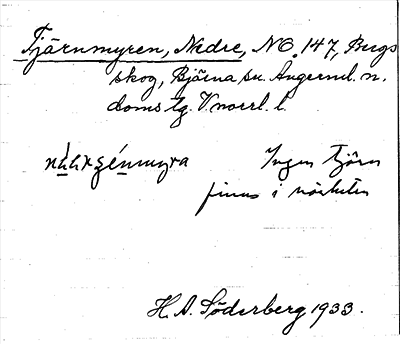 Tjärnmyren, Nedre, NO. 147, Bergs
skog, Björna sn. Ångerml. n.
doms lg. V norrl. l.
Ingen tjärn
finns i närheten
H. A. Söderberg 1933.